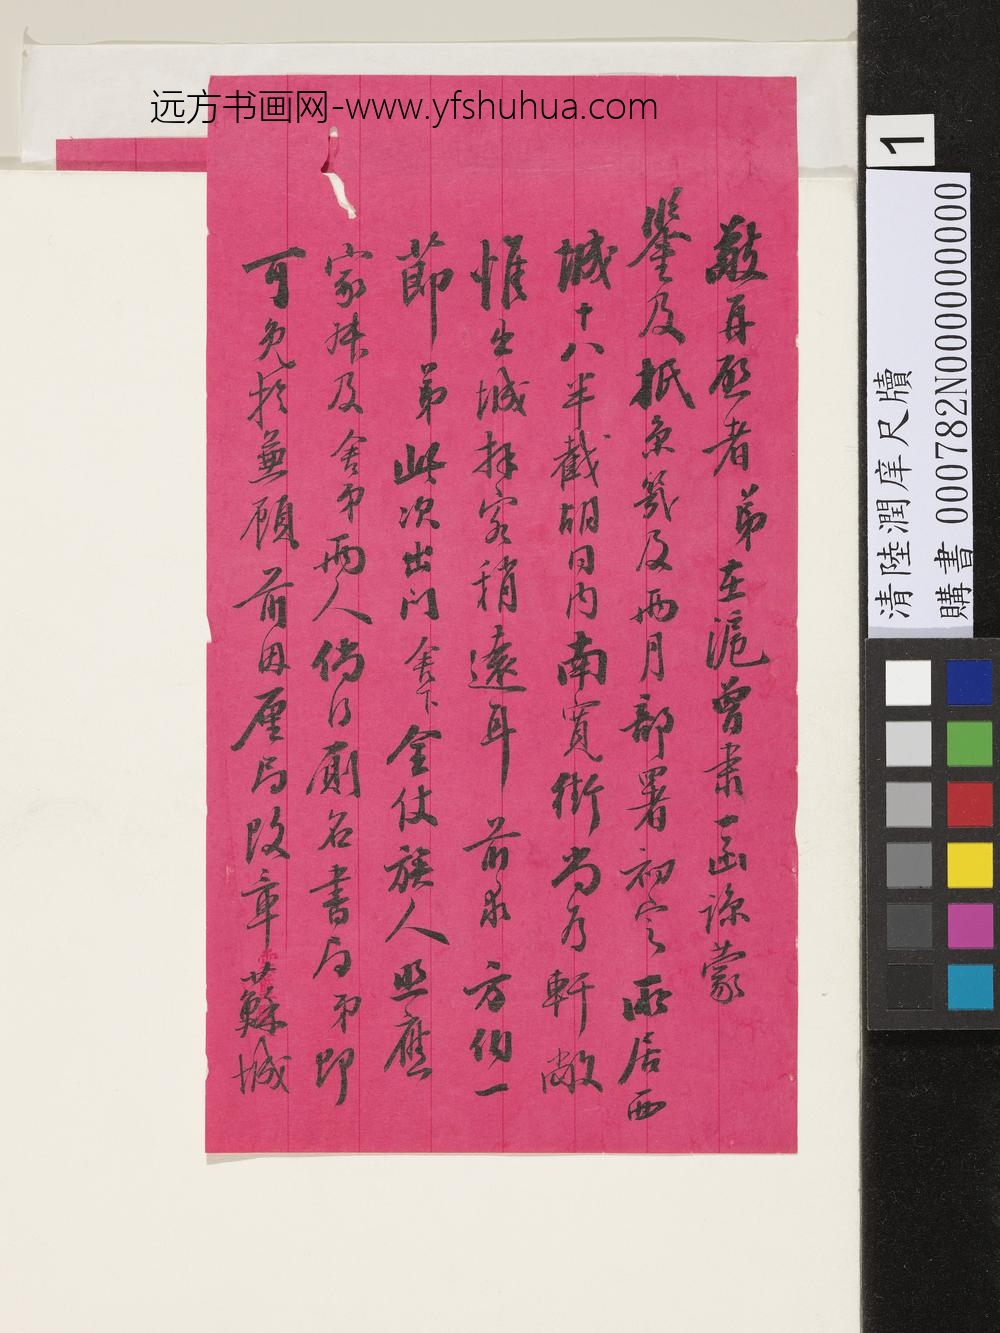 远方书画网-www.yfshuhua.com
敬再啟者弟在滬曾肅一函諒蒙
鑒及抵京幾及兩月部署初定所居西
城十八半截胡同內南寬街尚為軒敞
惟出城拜客稍遠耳前求方伯一
節弟此次出门舍下全仗族人照應
家姊及舍弟兩人倘得廁名書局弟即
可免於兼顧前因厘局改章蘇城
1
清陸潤庠尺牘
購書 000782N000000000